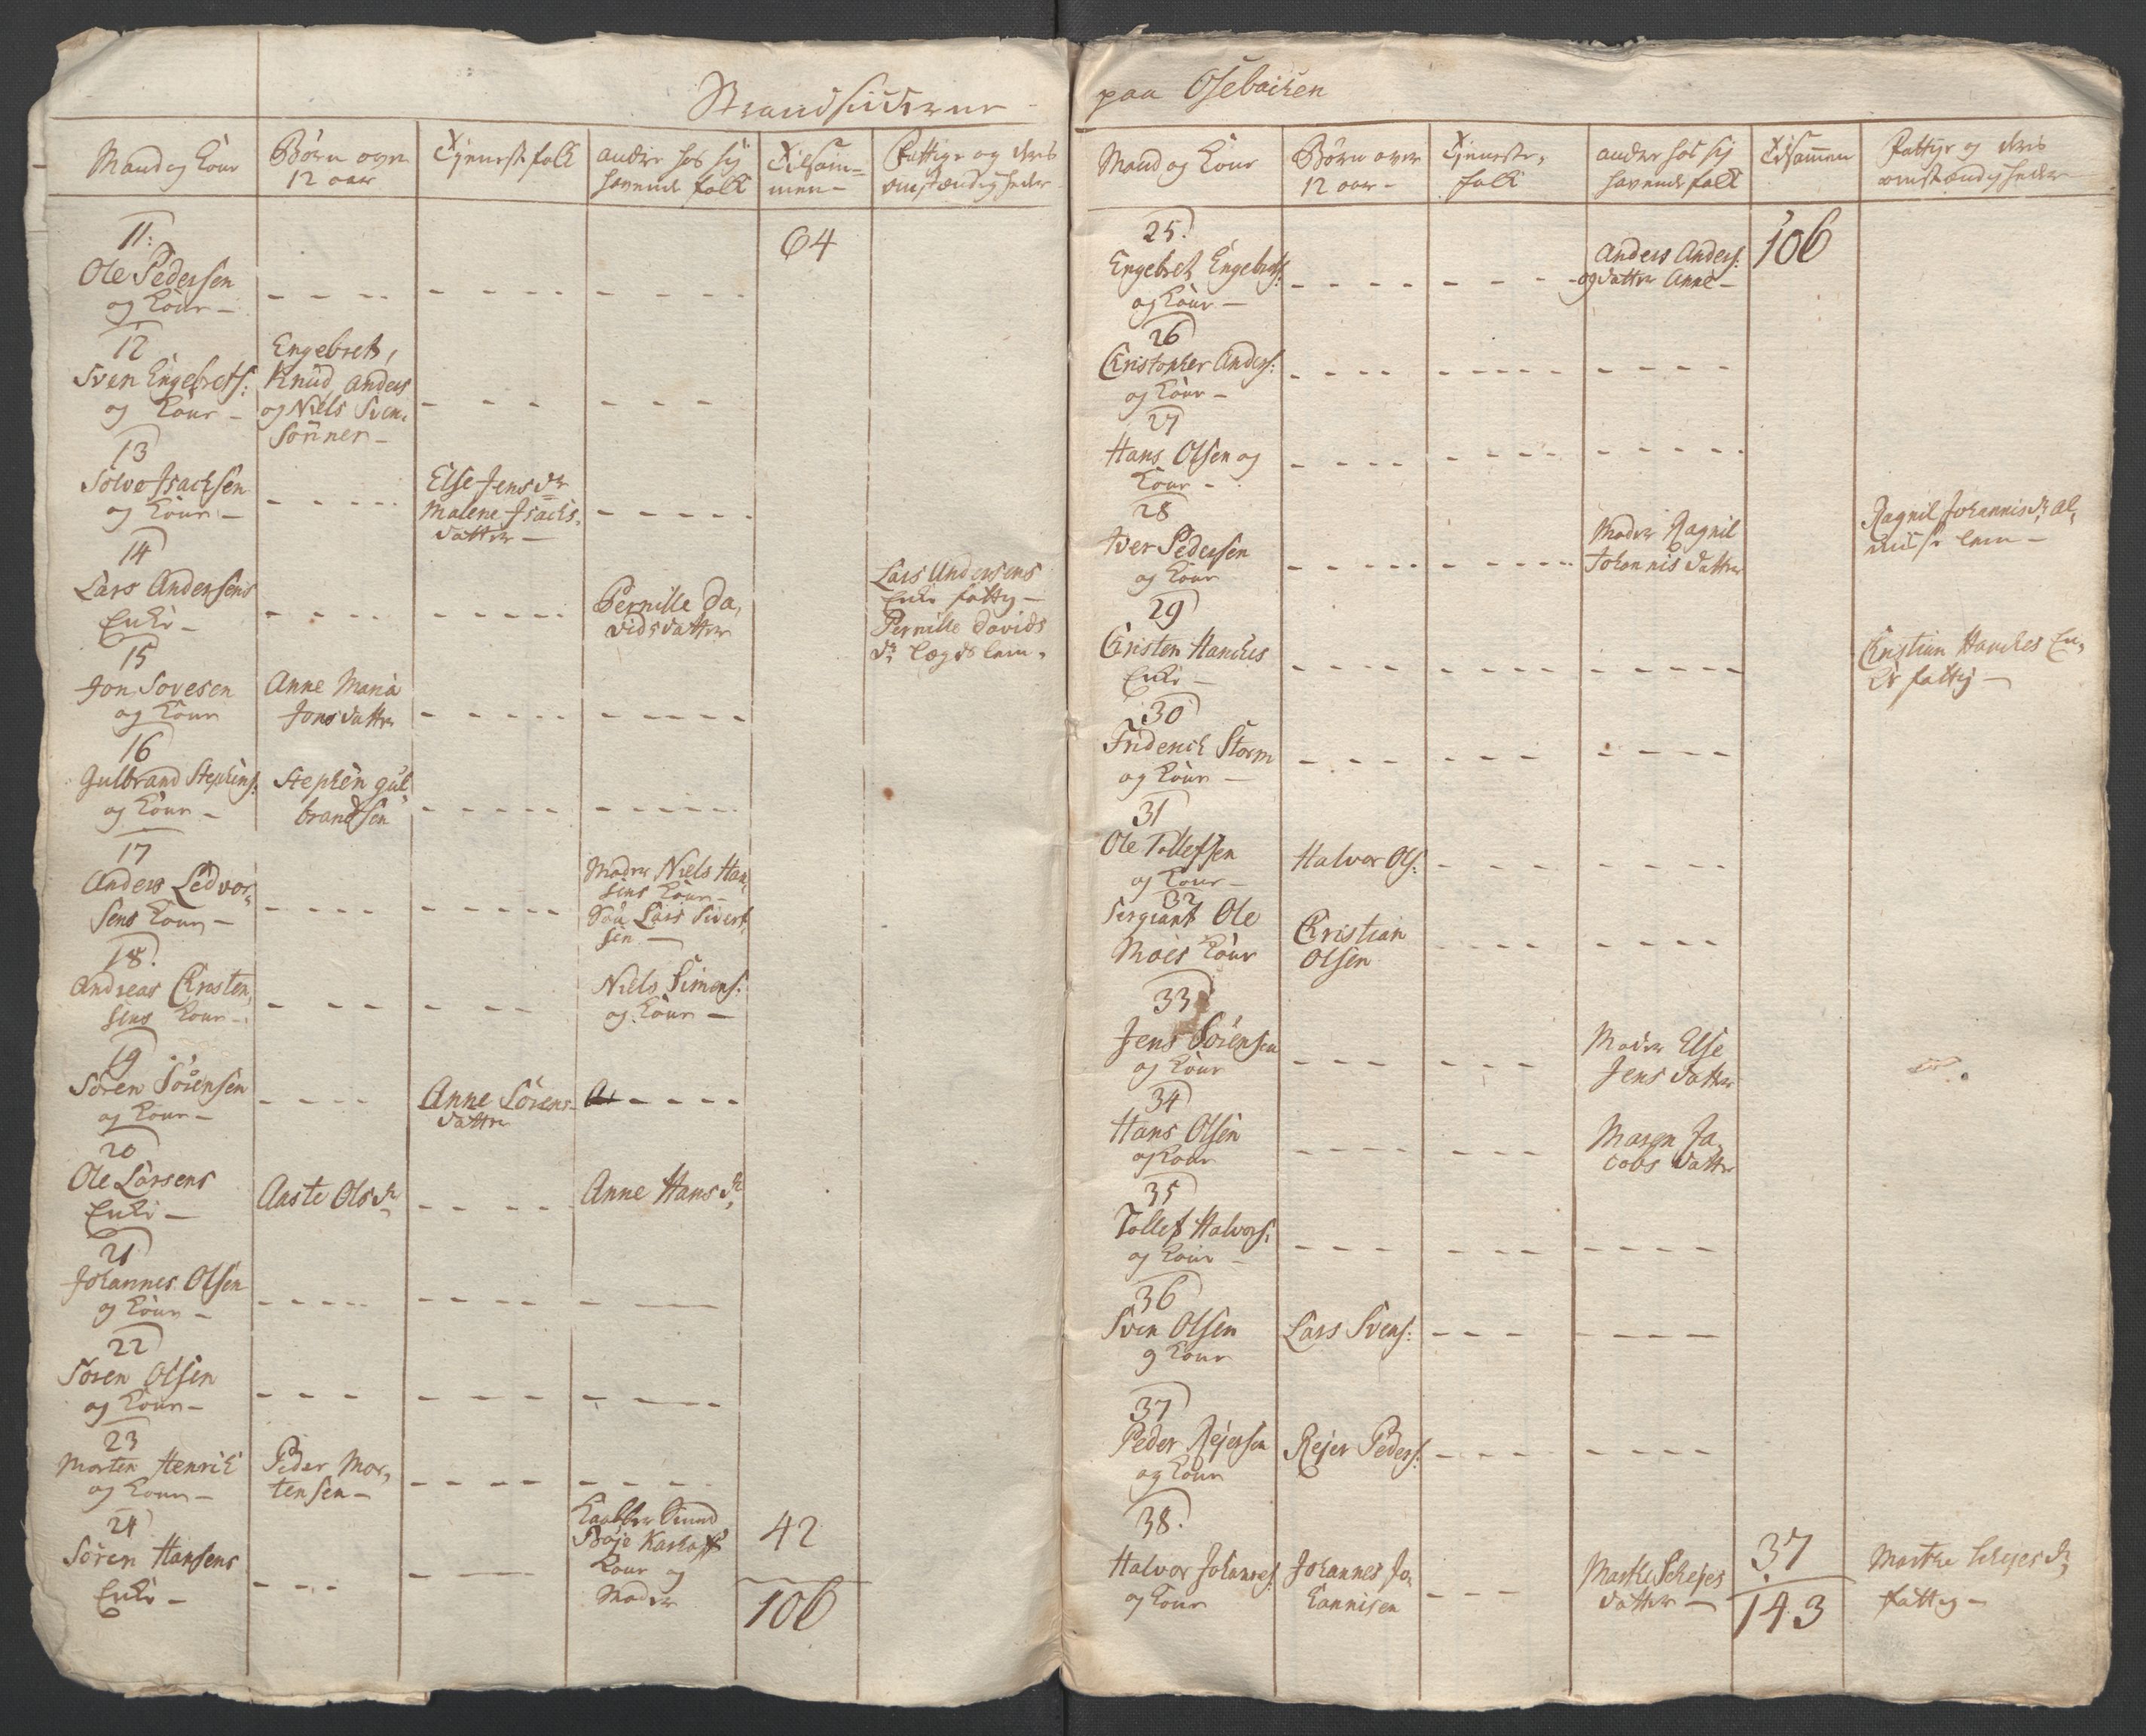 Strandsidderne
Mand og Kone
Børn over
12 aar
Tjenestfolk
andre hos sig
havende folk
Tilsam=
men-
Fattige og deris
omstændigheder
64
11:
Ole Pedersen
og Kone -
12
Sven Engebrets:
og Kone -
Engebret,
Knud, Anders
og Niels Sven,
sønner -
13
Solve Isachsen
og Kone -
Else Jens dr
Malene Isachs,
datter -
14
Lars Andersens
Enke -
Pernille Da,
vids datter
Lars Andersens
Enke fattig -
Pernille Davids
dr lægds lem,
15
Jon Sovesen
og Kone
Anne Maria
Jons datter
16
Gulbrand Stephens:
og Kone -
Stephen Gul
brandsen
17
Anders Ledvor,
sens Kone -
Moder Niels Han,
sens Kone -
Lars Sivert,
sen -
18.
Andreas Christen,
sens Kone -
Niels Simens:
og Kone -
19
Søren Sörensen
og Kone -
Anne Sörens
datter
20
Ole Larsens
Enke -
Aaste Ols dr
Anne Hans dr
21
Johannes Olsen
og Kone -
22
Søren Olsen
og Kone -
23
Morten Henrik
og Kone -
Peder Mor,
tensen -
24
Sören Hansens
Enke -
Boje
Kone og
Moder
42
106
paa Osebacken
Mand og Kone
Børn over
12 aar -
Tjeneste,
folk
andre hos sig
havende folk
Tilsammen
Fattige og deris
omstændigheder
106
25.
Engebret Engebrets:
og Kone -
Anders Anders:
og datter Anne -
26
Christopher Anders:
og Kone -
27
Hans Olsen og
Kone -
28
Iver Pedersen
og Kone
Moder Ragnil
Johannis datter
Ragnil Johannis dr al,
lem -
29
Christen Hanches
Enke -
Christian Hanches En,
ke fattig -
30
Friderich Storm
og Kone -
31
Ole Tollefsen
og Kone -
Halvor Ols:
32
Sergiant Ole
Moes Kone
Christian
Olsen
33
Jens Sörensen
og Kone
Moder Else
Jens datter
34
Hans Olsen
og Kone
Maren Ja,
cobs datter
35
Tollef Halvors:
og Kone -
36
Sven Olsen
og Kone
Lars Svens:
37
Peder Rejersen
og Kone
Rejer Peders:
38.
Halvor Johannes:
og Kone
Johannes Jo,
hannisen
Marthe
datter -
37
143
Marthe
fattig -